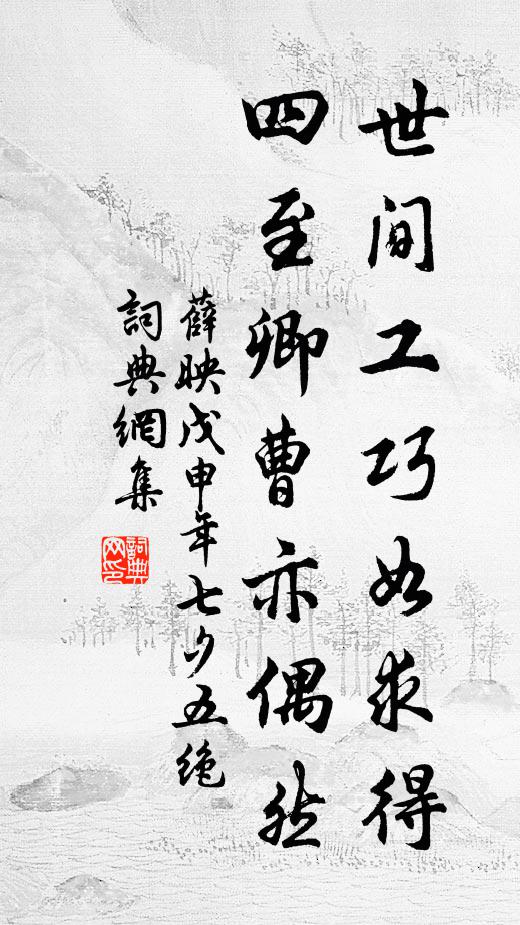 世间工巧如求得
四至卿曹亦偶然
薛映戊申年七夕五绝
詞典網集
詞典網印